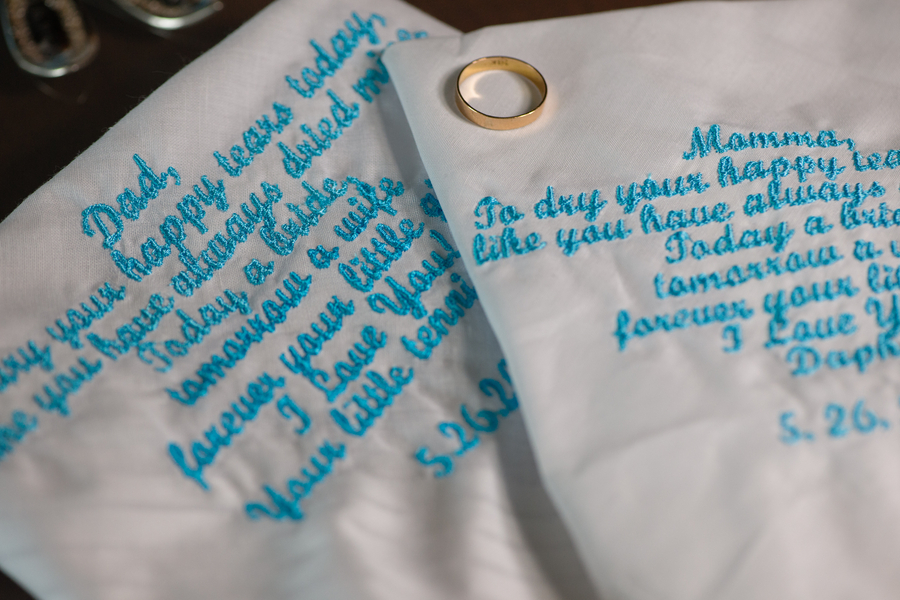 Dad,
dry your happy tears today,
like you have always dried
Today a bride
tomorrow a wife
forever your little
I Love You!
Your little
5.26.20
Momma,
To dry your happy tea
like you have always
Today a brid
tomorrow a w
forever your li
I Love Y
Daph
5. 26.